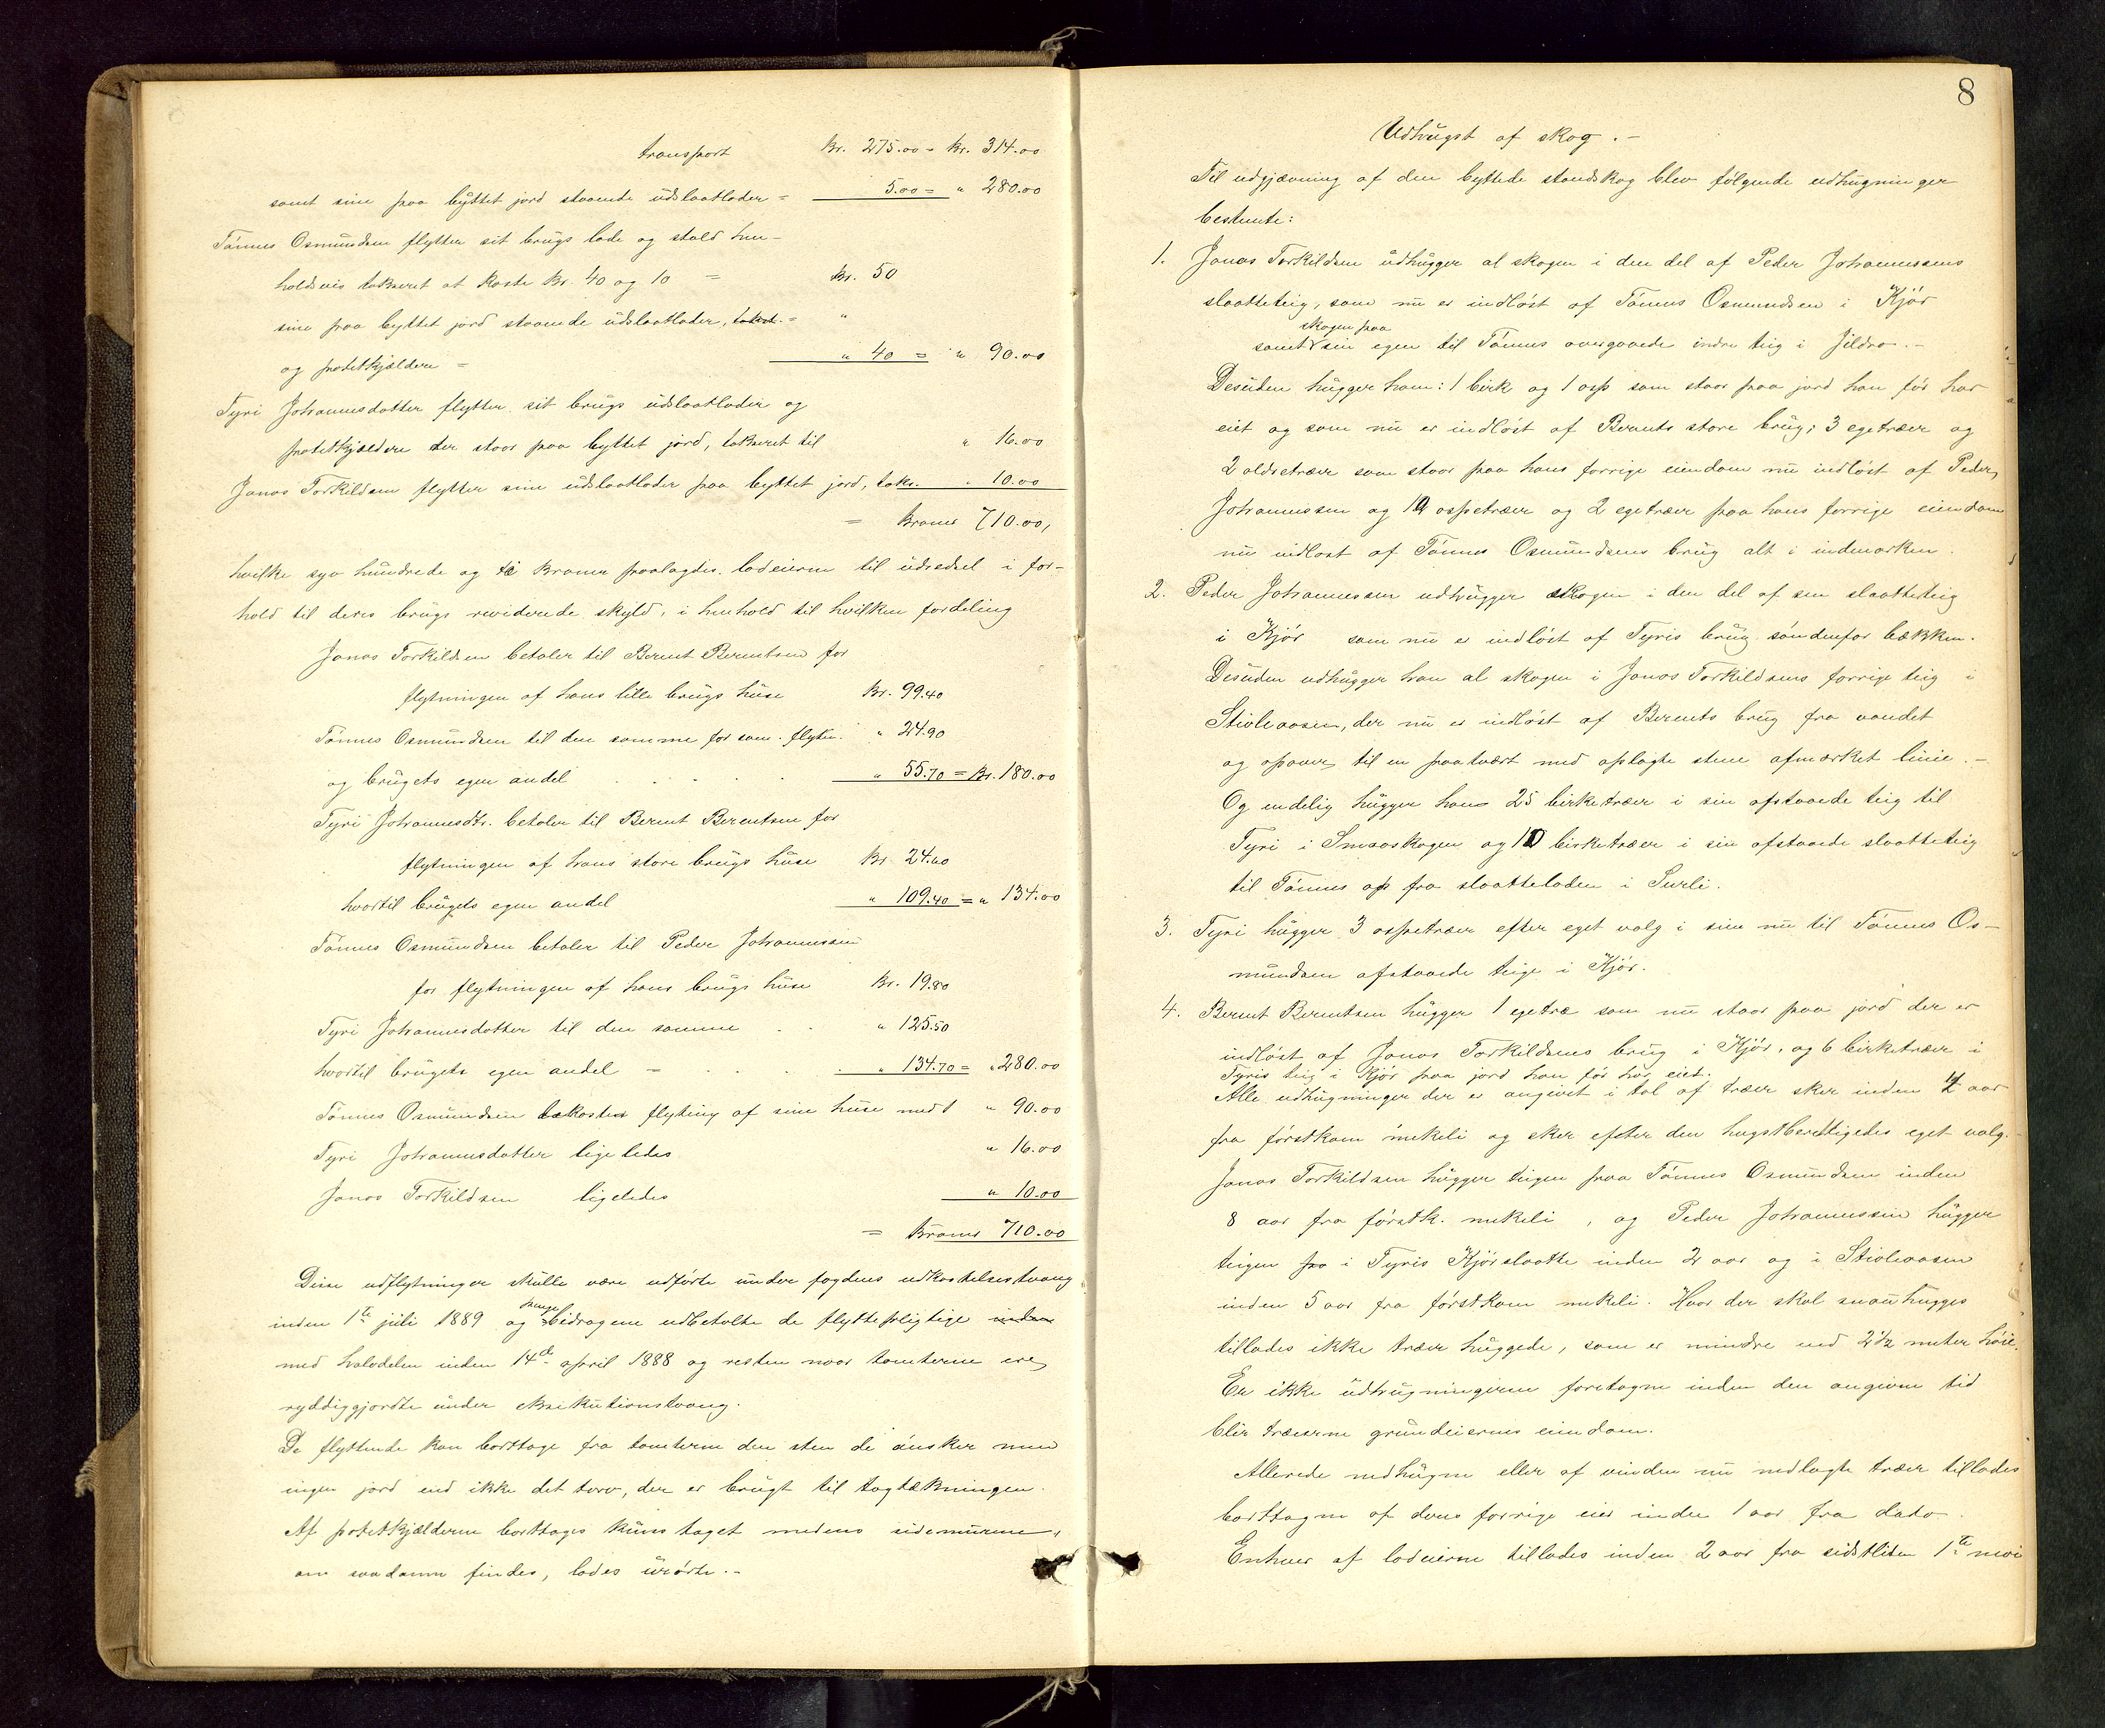 transport Kr. 275.00 = Kr. 314.00
samt sine paa byttet jord staaende udslaatlader = 5.00 = " 280.00
Tønnes Osmundsen flytter sit brugs lade og stald hen-
holdsvis takseret at koste Kr. 40 og 10 = Kr. 50
sine paa byttet jord staaende udslaatlader, takst. = "
og potetkjældere = " 40 = " 90.00
Tyri Johannesdatter flytter sit brugs udslaatlader og
potetkjældere der staar paa byttet jord, takseret til " 16.00
Jonas Torkildsen flytter sine udslaatlader paa byttet jord, taks. " 10.00
= Kroner 710.00,
hvilke syv hundrede og ti kroner paalagdes lodeierne til udredsel i for-
hold til deres brugs reviderede skyld, i henhold til hvilken fordeling
Jonas Torkildsen betaler til Berent Berentsen for
flytningen af hans lille brugs huse Kr. 99.40
Tønnes Osmundsen til den samme for sam. flytn. " 24.90
og brugets egen andel " 55.70 = Kr. 180.00
Tyri Johannesdtr. betaler til Berent Berentsen for
flytningen af hans store brugs huse Kr. 24.60
hvortil brugets egen andel " 109.40 = " 134.00
Tønnes Osmundsen betaler til Peder Johannessen
for flytningen af hans brugs huse Kr. 19.80
Tyri Johannesdatter til den samme " 125.50
hvortil brugets egen andel = " 134.70 = " 280.00
Tønnes Osmundsen bekoster flyting af sine huse med " 90.00
Tyri Johannesdatter ligeledes " 16.00
Jonas Torkildsen ligeledes " 10.00
= Kroner 710.00
Disse udflytninger skulle være udførte under fogdens udkastelsestvang
inden 1te juli 1889 og penge bidragene udbetalte de flyttepligtige inden
med halvdelen inden 14de april 1888 og resten naar tomterne ere
ryddiggjordte under eksekutionstvang.
De flyttende kan borttage fra tomterne den sten de ønsker men
ingen jord eid ikke det torv, der er brugt til tagtækningen.
Af potetkjælderne borttages kuns taget medens sidemurene,
om saadanne findes, lades urørte. -
8
Udhugst af skog. -
Til udgjævning af den byttede standskog blev følgende udhugninger
bestemte:
1. Jonas Torkildsen udhugger al skogen i den del af Peder Johannessens
slaatteteig, som nu er indløst af Tønnes Osmundsen i Kjør
samt skogen paa sin egen til Tønnes overgaaede indre teig i Jildra. -
Desuden hugger han: 1 birk og 1 osp som staar paa jord han før har
eiet og som nu er indløst af Berents store brug; 3 egetræer og
2 oldretræer som staar paa hans forrige eiendom nu indløst af Peder
Johannessen og 10 ospetræer og 2 egetræer paa hans forrige eiendom
nu indløst af Tønnes Osmundsens brug alt i indmarken.
2. Peder Johannessen udhugger skogen i den del af sin slaatteteig
i Kjør som nu er indløst af Tyris brug søndenfor bækken.
Desuden udhugger han al skogen i Jonas Torkildsens forrige teig i
Stivleaasen, der nu er indløst af Berents brug fra vandet
og opover til en paatvært med oplagte stene afmærket linie. -
Og endelig hugger han 25 birketræer i sin afstaaede teig til
Tyri i Smaaskogen og 10 birketræer i sin afstaaede slaatteteig
til Tønnes op fra slaatteladen i Surli.
3. Tyri hugger 3 ospetræer efter eget valg i sine nu til Tønnes Os-
mundsen afstaaede teige i Kjør.
4. Berent Berentsen hugger 1 egetræ som nu staar paa jord der er
indløst af Jonas Torkildsens brug i Kjør, og 6 birketræer i
Tyris teig i Kjør paa jord han før har eiet.
Alle udhugninger der er angivet i tal af træer sker inden 2 aar
fra førstkom mikeli og sker efter den hugstberettigedes eget valg. -
Jonas Torkildsen hugger teigen paa Tønnes Osmundsen inden
8 aar fra førstk. mikeli, og Peder Johannessen hugger
teigen paa i Tyris Kjørslaatte inden 2 aar og i Stivleaasen
inden 5 aar fra førstkom mikeli. Hvor der skal snauhugges
tillades ikke træer huggede, som er mindre end 2 1/2 meter høie.
Er ikke udhugningerne foretagne inden den angivne tid
blir træerne grundeiernes eiendom.
Allerede nedhugne eller af vinden nu nedlagte træer tillades
borttagne af deres forrige eier inden 1 aar fra dato.
Enhver af lodeierne tillades inden 2 aar fra sidstliden 1te mai